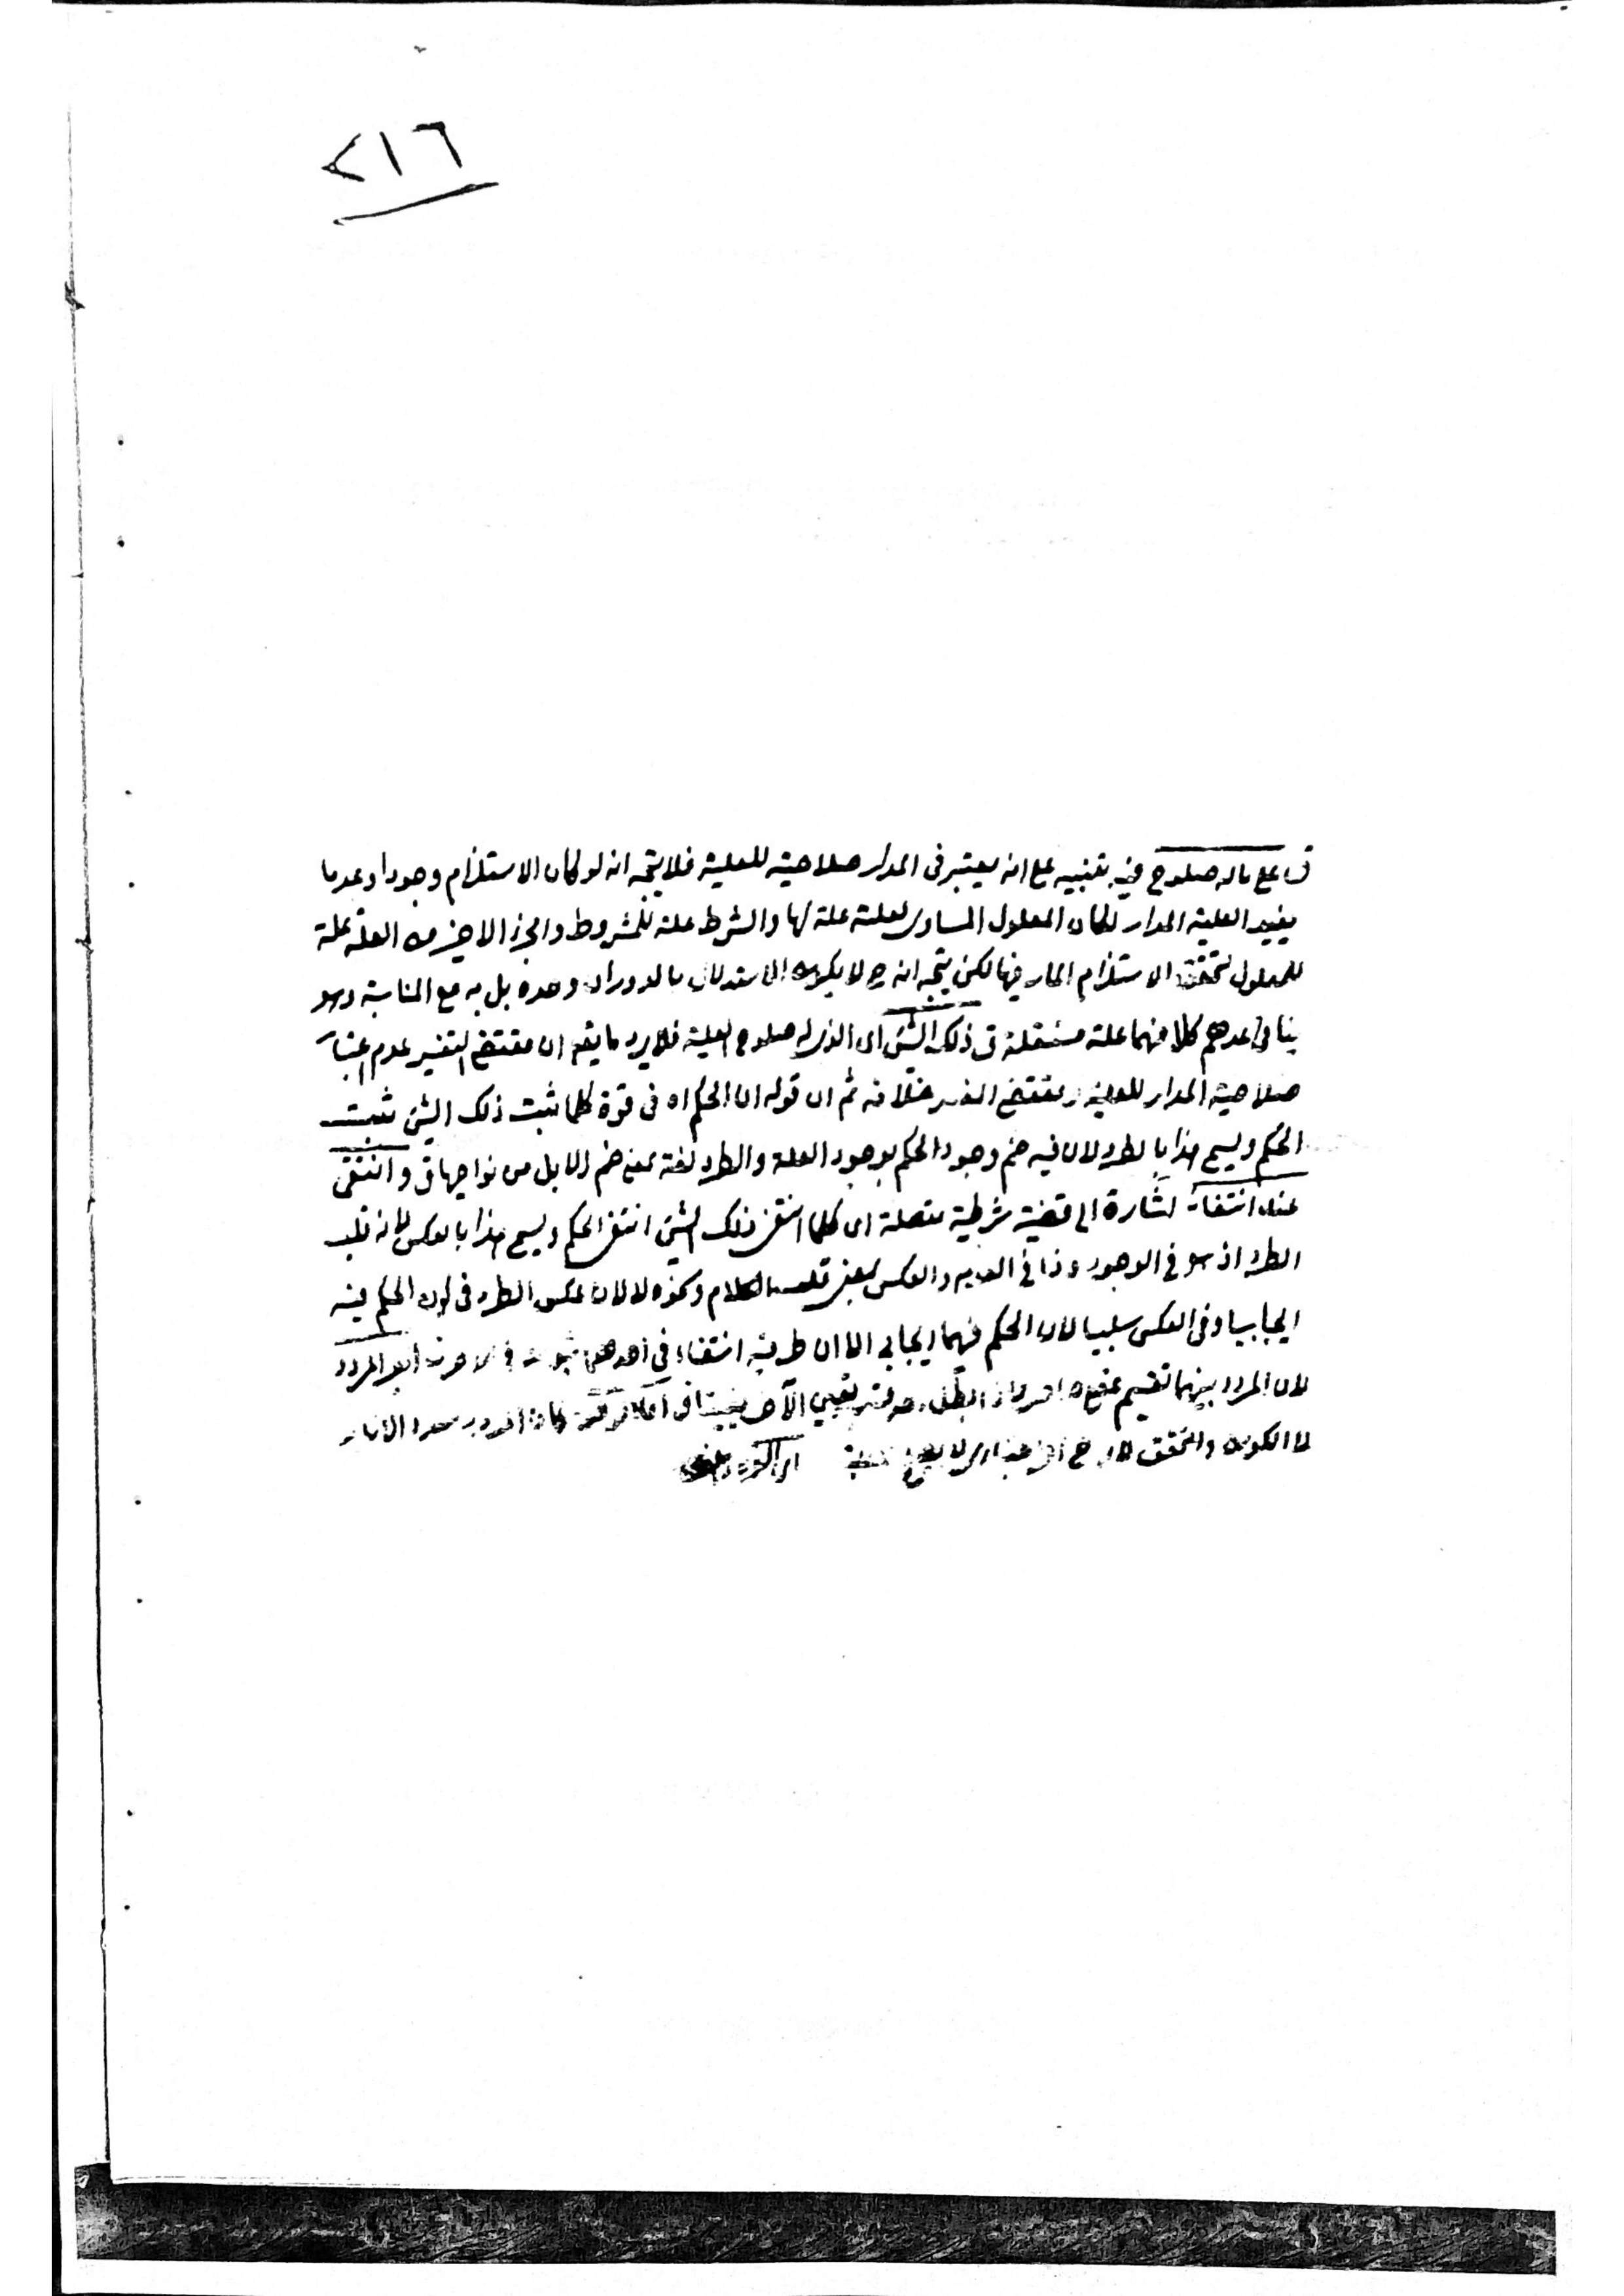 ٢١٦
ق على ما له صلوح فيه تنبيه على انه يعتبر فى المدار صلاحية للعلية فلا يتجه انه لو كان الاستلزام وجودا وعدما
يفيد العلية المدار لكان المعلول المساوى لعلته علة لها والشرط علة للمشروط والجزء الاخير من العلة علة
للمعلول لتحقق الاستلزام المار فيها لكن يتجه انه ح لا يكون الاستدلال بالدوران وحده بل به مع المناسبة وهو
ينافى عدهم كلا منهما علة مستقلة ق ذلك الشئ اى الذى له صلوح العلية فلا يرد ما يقم ان مقتضى التفسير عدم اعتبار
صلاحية المدار للعلية ومقتضى خلافه ثم ان قوله ان الحكم اه فى قوة كلما ثبت ذلك الشئ ثبت
الحكم ويسمى هذا بالطرد لان فيه ضم وجود الحكم بوجود العلة والطرد لغة بمعنى ضم الابل من نواحيها ق وانتفى
عند انتفائه اشارة الى قضية شرطية متصلة اى كلما انتفى ذلك الشئ انتفى الحكم ويسمى هذا بالعكس لانه قلب
الطرد اذ هو فى الوجود وذا فى العدم والعكس بمعنى قلب الكلام ونحوه لا لان عكس الطرد فى كون الحكم فيه
ايجابيا وفى العكس سلبيا لان الحكم فيهما ايجابى الا ان طرفيه انتفاء فى احدهما المردد
لان المردد بينهما تقسيم تعيين الآخر
والتحقق